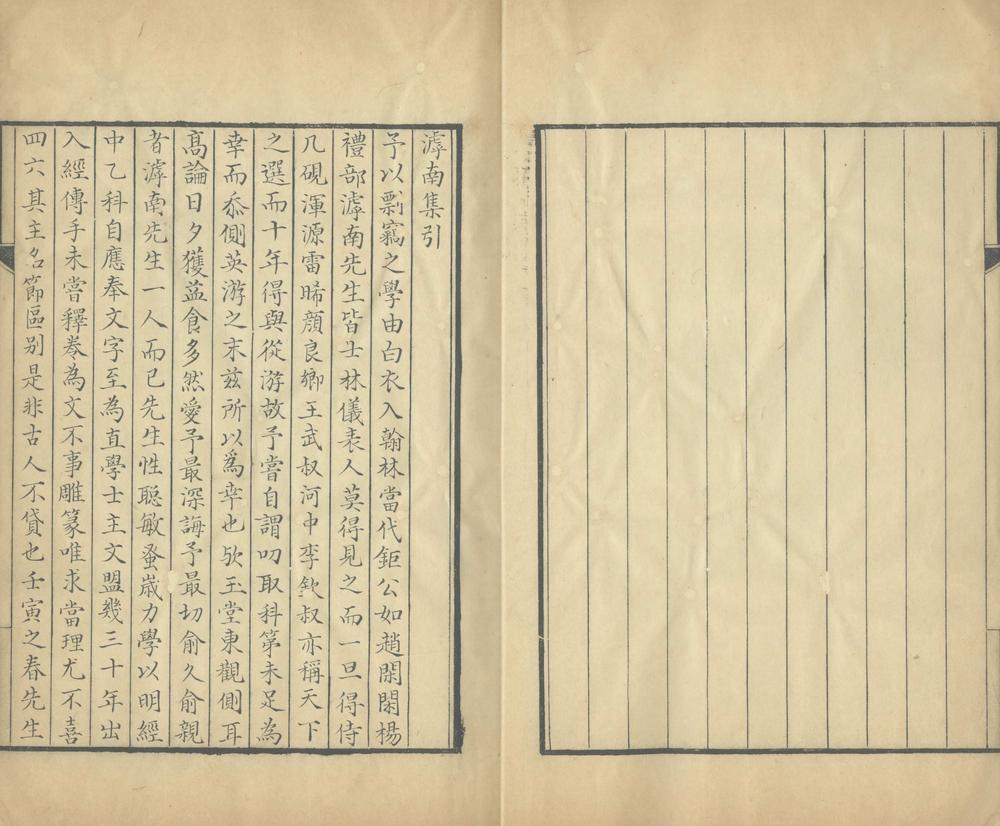 滹南集引
予以剽竊之學由白衣入翰林當代鉅公如趙閑閑楊
禮部滹南先生皆士林儀表人莫得見之而一旦得侍
几硯渾源雷晞顏良鄉王武叔河中李欽叔亦稱天下
之選而十年得與從游故予嘗自謂叨取科第未足為
幸而忝側英游之末兹所以為幸也欤玉堂東觀側耳
髙論日夕獲益食多然愛予最深誨予最切俞久俞親
者滹南先生一人而已先生性聰敏蚤歲力學以明經
中乙科自應奉文字至為直學士主文盟幾三十年出
入經傳手未嘗釋卷為文不事雕篆唯求當理尤不喜
四六其主名節區别是非古人不貸也壬寅之春先生